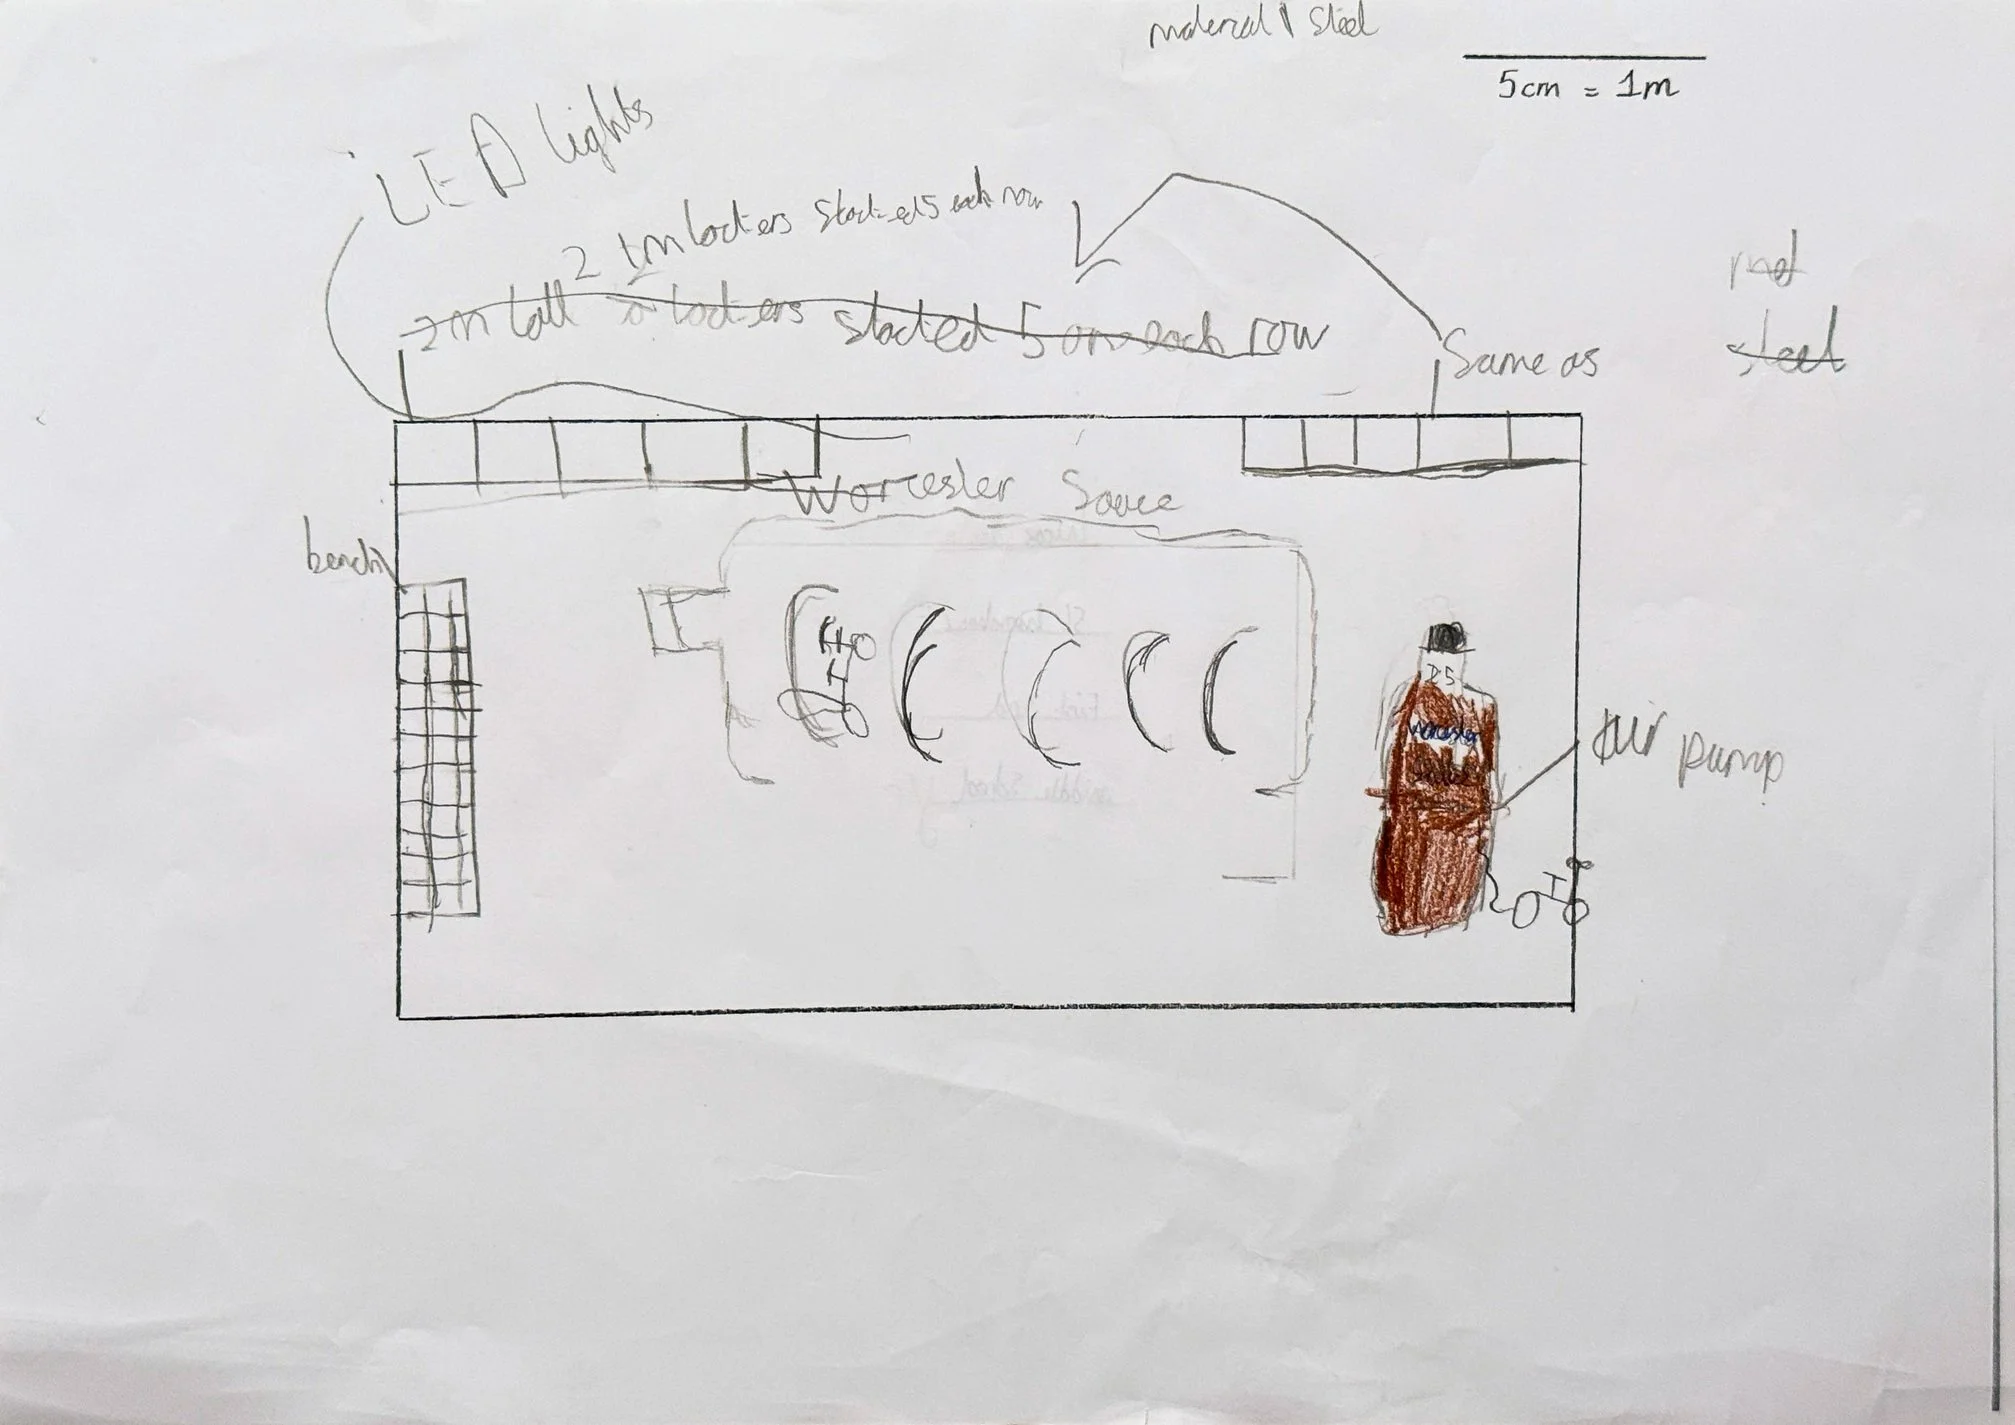 material Steel
5cm = 1m
LED lights
2 1m lockers stacked 5 each row
2m tall lockers stacked 5 on each row
Same as
steel
Worcester Sauce
bench
25
Worcester
Air pump